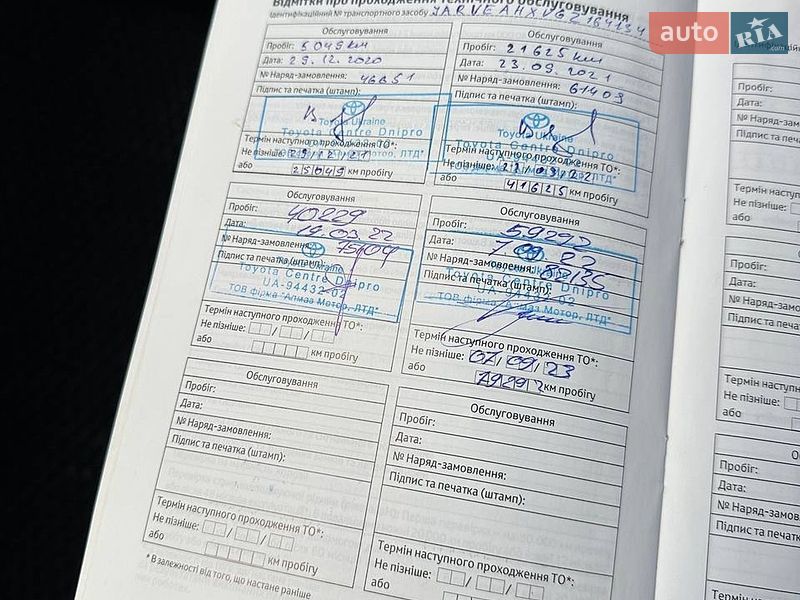 Відмітки про проходження технічного обслуговування
Ідентифікаційний № транспортного засобу
auto RIA .com
Обслуговування
Пробіг: 5049 км
Дата: 29.12.2020
№ Наряд-замовлення: 46851
Підпис та печатка (штамп):
Toyota Ukraine
Toyota Centre Dnipro
Термін наступного проходження ТО*:
Не пізніше: 29/12/21
або 25049 км пробігу
Обслуговування
Пробіг: 21625 км
Дата: 23.09.2021
№ Наряд-замовлення: 61409
Підпис та печатка (штамп):
Toyota Ukraine
Toyota Centre Dnipro
Термін наступного проходження ТО*:
Не пізніше: 23/09/22
або 41625 км пробігу
Обслуговування
Пробіг: 40229
Дата: 19.03.22
№ Наряд-замовлення: 75109
Підпис та печатка (штамп):
Toyota Ukraine
Toyota Centre Dnipro
UA-94432-02
ТОВ фірма "Алмаз Мотор, ЛТД"
Термін наступного проходження ТО*:
Не пізніше:
або км пробігу
Обслуговування
Пробіг: 59292
Дата: 7.09.22
№ Наряд-замовлення:
Підпис та печатка (штамп):
Toyota Centre Dnipro
UA-94432-02
ТОВ фірма "Алмаз Мотор, ЛТД"
Термін наступного проходження ТО*:
Не пізніше: 07/09/23
або 79292 км пробігу
Обслуговування
Пробіг:
Дата:
№ Наряд-замовлення:
Підпис та печатка (штамп):
Термін наступного проходження ТО*:
Не пізніше:
або км пробігу
* В залежності від того, що настане раніше
Обслуговування
Пробіг:
Дата:
№ Наряд-замовлення:
Підпис та печатка (штамп):
Термін наступного проходження ТО*:
Не пізніше:
або
Пробіг:
Дата:
№ Наряд-замовлення
Підпис та печатка
Термін наступного
Не пізніше:
або
Пробіг:
Дата:
№ Наряд-замовлення
Підпис та печатка
Термін наступного
Не пізніше:
або
Пробіг:
Дата:
№ Наряд-замовлення
Підпис та печатка (шта
Термін наступного